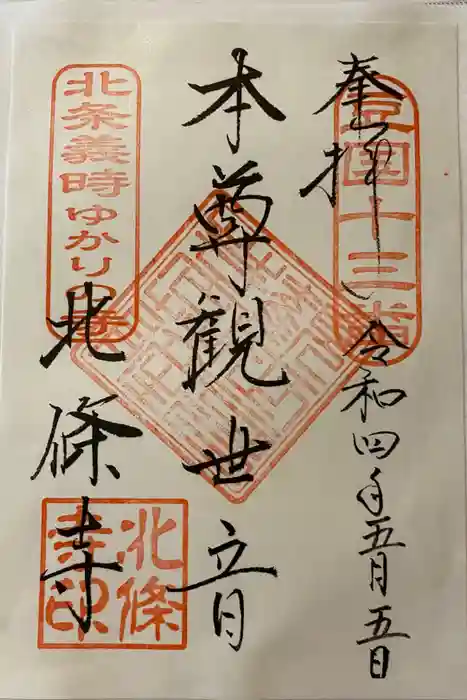 奉拝
豆国十三番
令和四年五月五日
本尊観世音
北条義時ゆかりの寺
北條寺
北條寺印